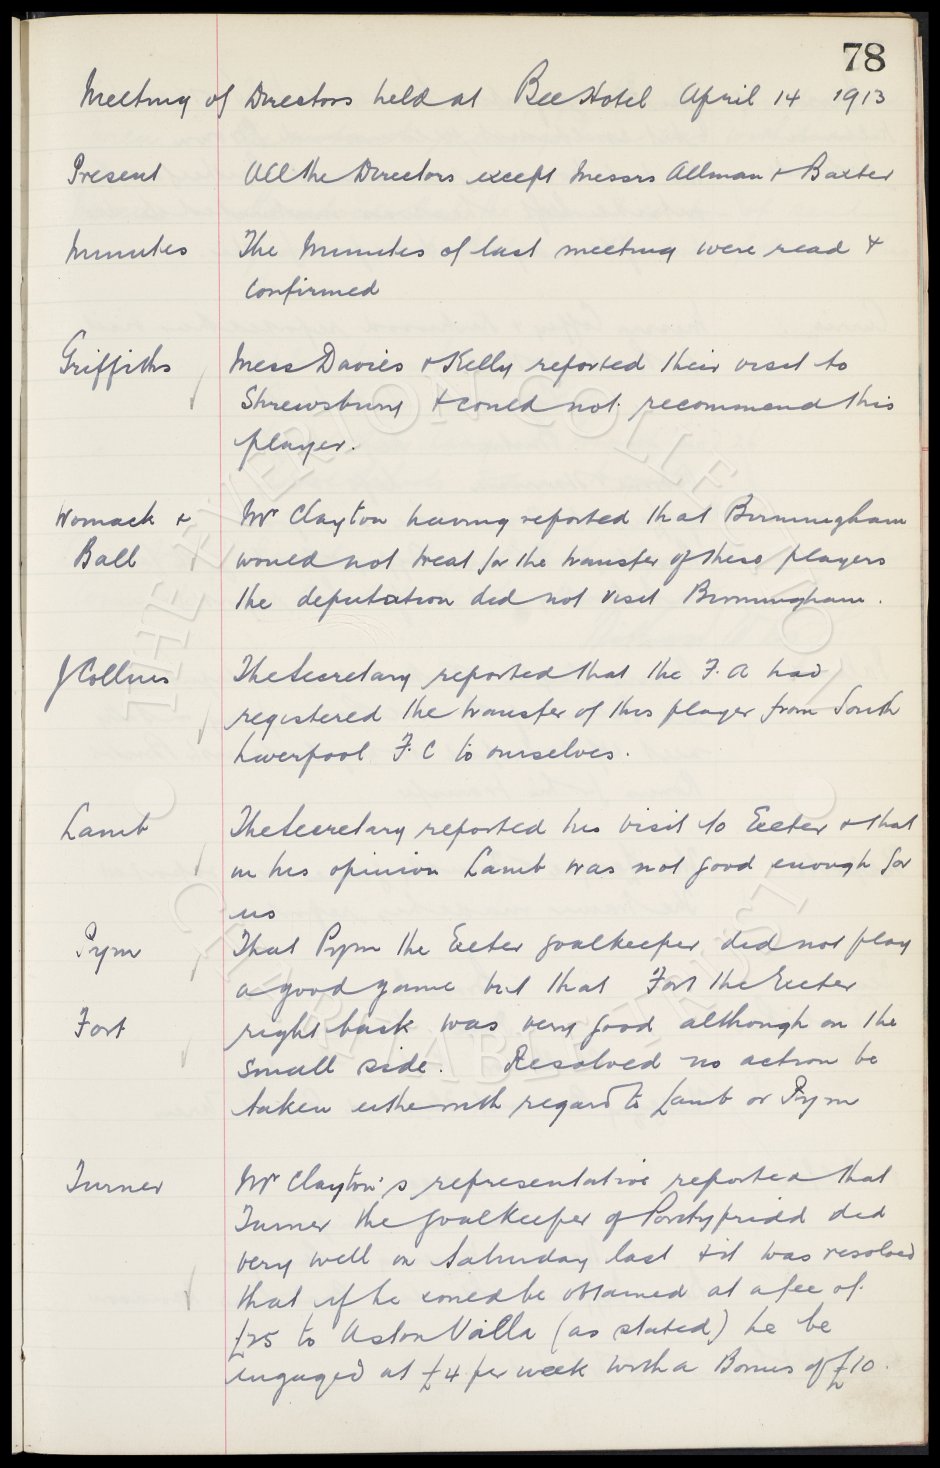 78
Meeting of Directors held at Bee Hotel April 14 1913
Present All the Directors except Messrs Allman & Baxter
Minutes The Minutes of last meeting were read &
confirmed
Griffiths Mess Davies & Kelly reported their visit to
Shrewsbury & could not recommend this
player.
Womack & Mr Clayton having reported that Birmingham
Ball would not treat for the transfer of these players
the deputation did not visit Birmingham.
J Collins The Secretary reported that the F.A had
registered the transfer of this player from South
Liverpool F.C to ourselves.
Lamb The Secretary reported his visit to Exeter & that
in his opinion Lamb was not good enough for
us
Pym That Pym the Exeter goalkeeper did not play
a good game but that Fort the Exeter
Fort right back was very good although on the
small side. Resolved no action be
taken either with regard to Lamb or Pym
Turner Mr Clayton's representative reported that
Turner the goalkeeper of Pontypridd did
very well on Saturday last & it was resolved
that if he could be obtained at a fee of
£25 to Aston Villa (as stated) he be
engaged at £4 per week with a Bonus of £10.
THE EVERTON COLLECTION CHARITABLE TRUST